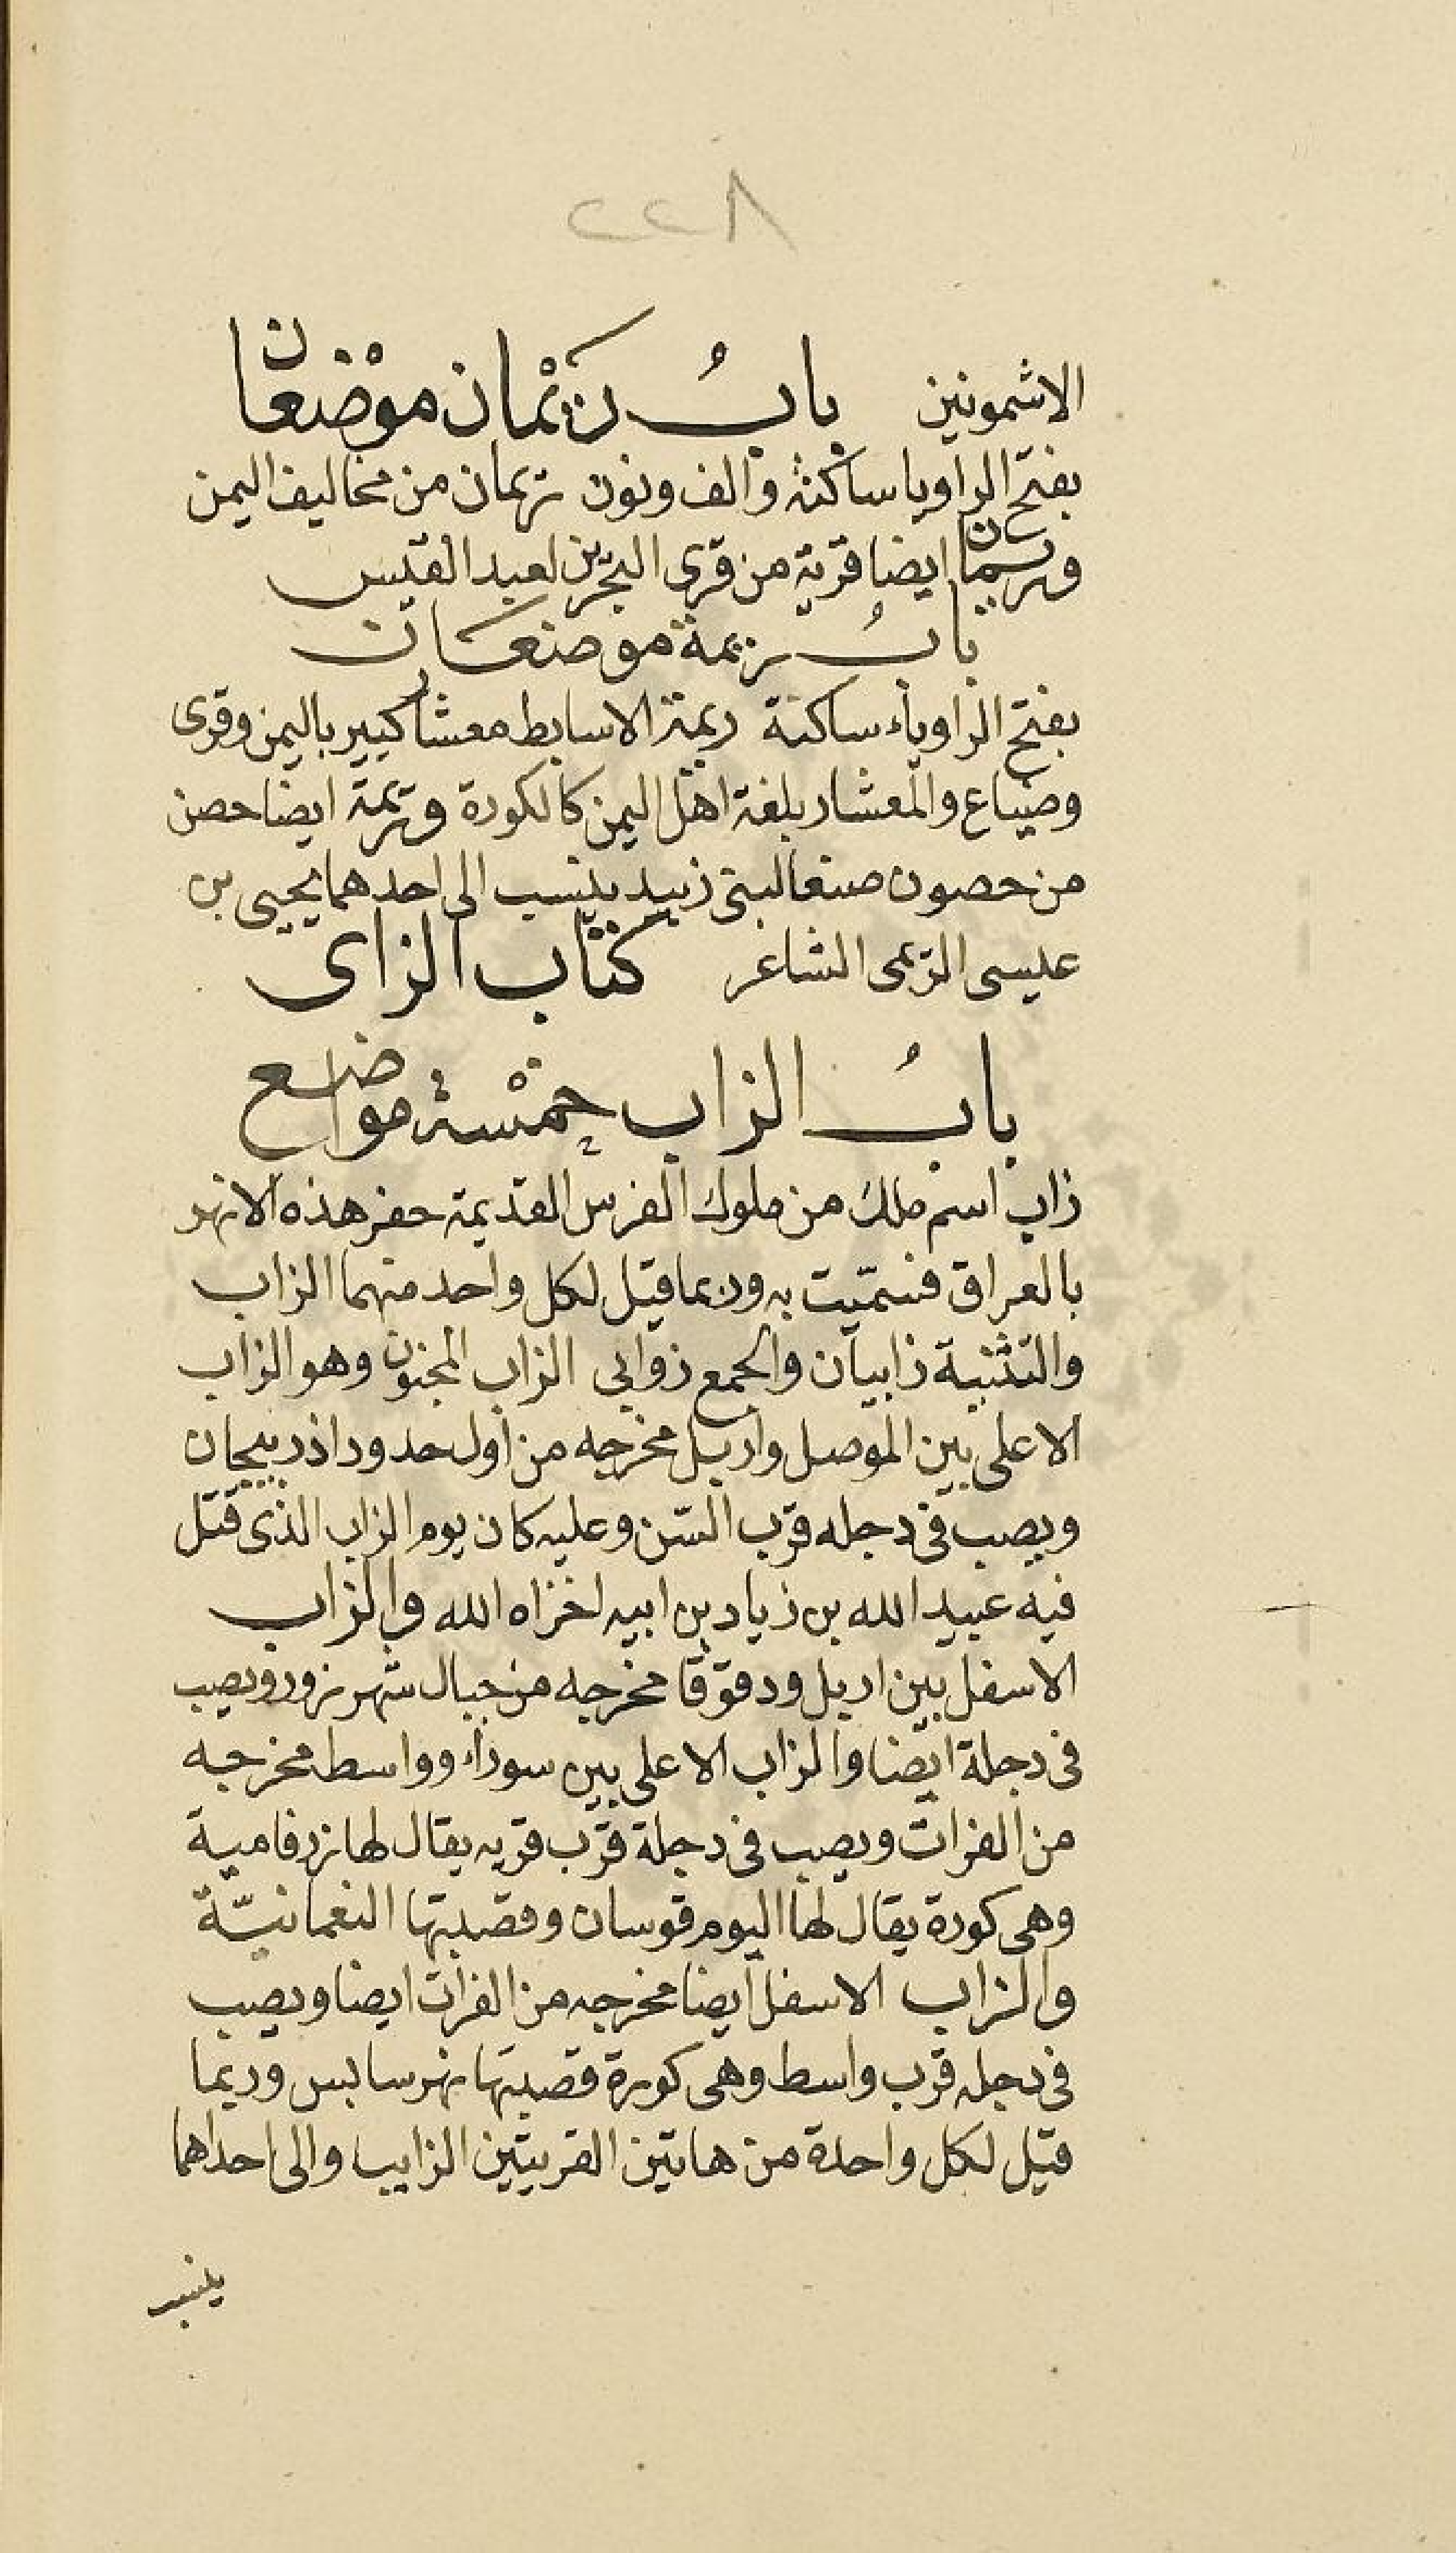 ٢٢٨
الاشمونين بابُ ريْمان موْضعان
بفتح الرا ويا ساكنة والف ونون ريمان من مخاليف اليمن
وريمان ايضا قرية من قرى البحرين لعبد القيس
بابُ ريمة موضعان
بفتح الرا وياء ساكنة ريمة الاسابط معشار كبير باليمن وقرى
وضياع والمعشار بلغة اهل اليمن كالكورة وريمة ايضا حصن
من حصون صنعا لبنى زبيد ينسب الى احدهما يحيى بن
عليسى الريمى الشاعر كتاب الزاى
بابُ الزاب خمْسة مواضع
زاب اسم ملك من ملوك الفرس القديمة حفر هذه الانهر
بالعراق فسمّيت به وربما قيل لكل واحد منهما الزاب
والتثنية زابيان والجمع زوابى الزاب المجنون وهو الزاب
الاعلى بين الموصل واربل مخرجه من اول حدود اذربيجان
ويصب فى دجله قرب السّن وعليه كان يوم الزاب الذى قتل
فيه عبيد الله بن زياد بن ابيه اخزاه الله والزاب
الاسفل بين اربل ودقوقا مخرجه من جبال شهرزور ويصب
فى دجلة ايضا والزاب الاعلى بين سوراء وواسط مخرجه
من الفرات ويصب فى دجلة قرب قريه يقال لها زرفامية
وهى كورة يقال لها اليوم قوسان وقصبتها النعمانيّة
والزاب الاسفل ايضا مخرجه من الفرات ايضا ويصب
فى دجله قرب واسط وهى كورة قصبتها نهر سابس وربما
قيل لكل واحدة من هاتين القريتين الزايب والى احداهما
ينسب